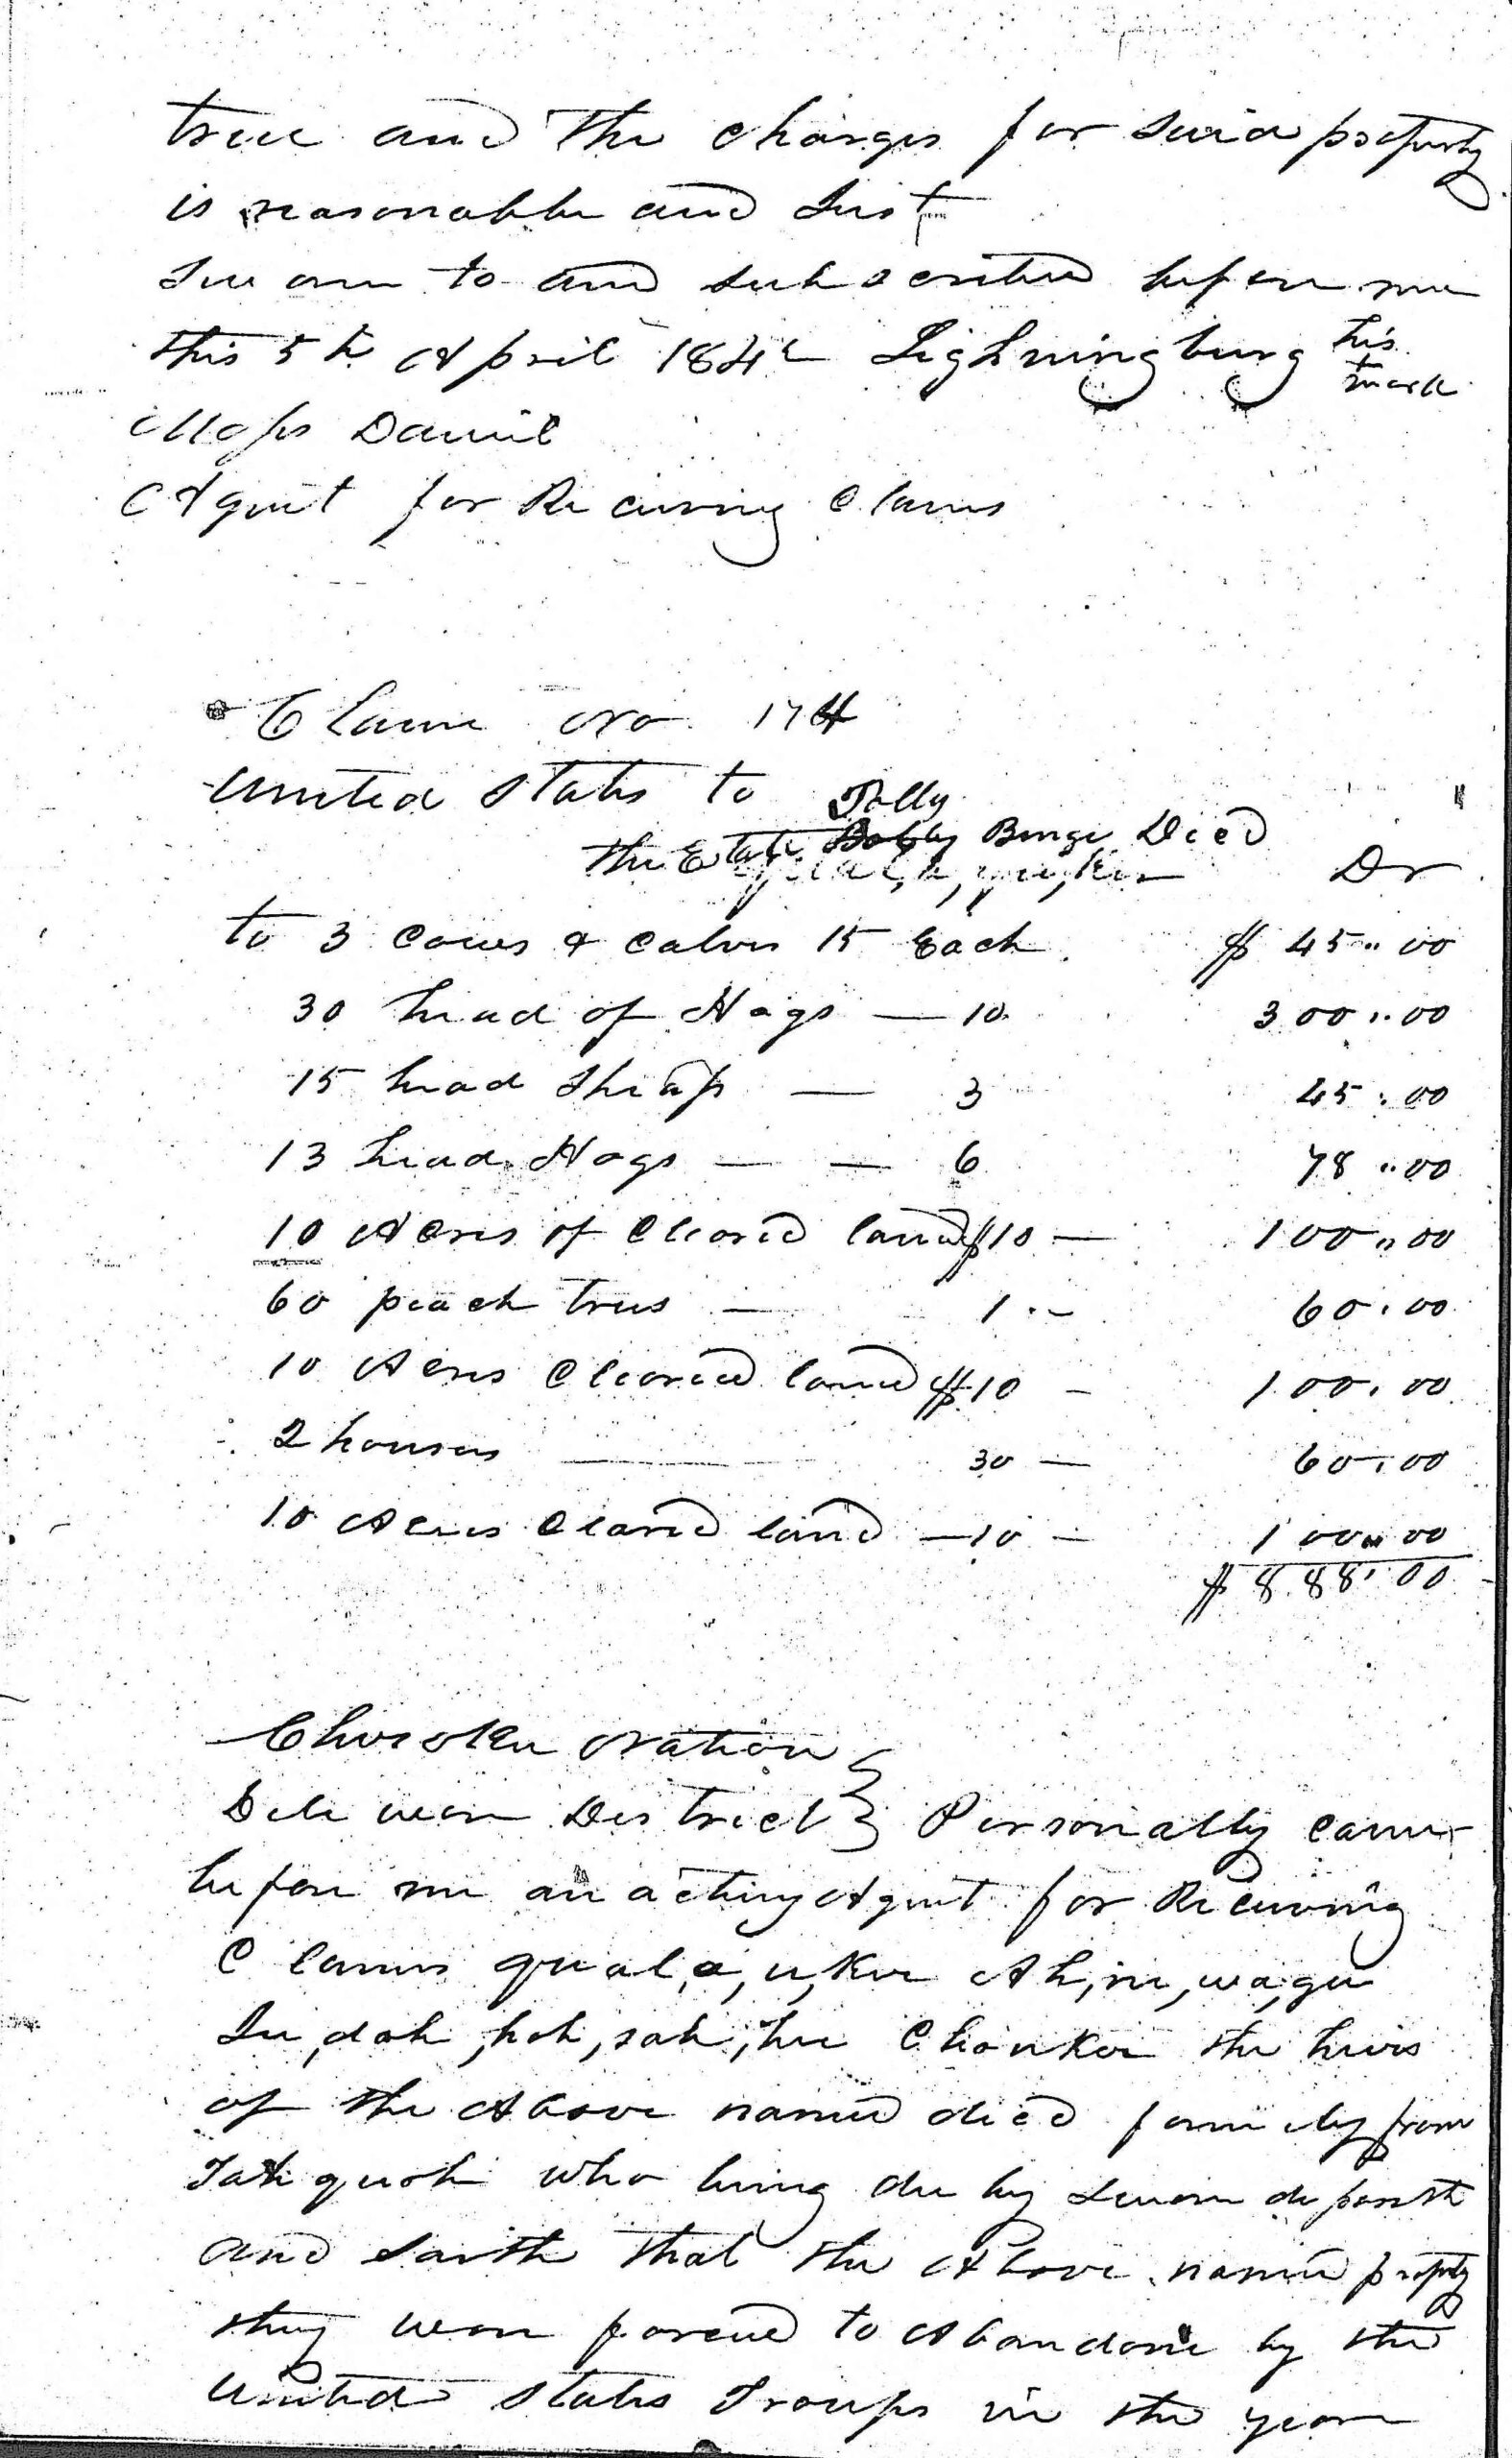 true and the charges for said property
is reasonable and Just
Sworn to and subscribed before me
this 5th April 1842 Lightningbug his
mark
Moses Daniel
Agent for Receiving Claims
Claim No. 174
United States to Polly
the Estate Bobby Benge Died
Dr
to 3 Cows & Calves 15 Each $ 45.00
30 head of Hogs — 10 300.00
15 head Sheap — 3 45.00
13 head Hogs — — 6 78.00
10 Acres of Cleared land $10 — 100.00
60 peach trees — 1 — 60.00
10 Acres Cleared land $10 — 100.00
2 houses — 30 — 60.00
10 Acres Cleared land — 10 — 100.00
$ 888.00
Cherokee Nation
Deleware District } Personally came
before me an acting Agent for Receiving
Claims qual,a,u,kee Ah,ne,wa,gee
hoh, sah, the heirs
of the Above named died formerly from
who being duly sworn deposeth
and saith that the Above named property
they were forced to Abandone by the
United States Troops in the year